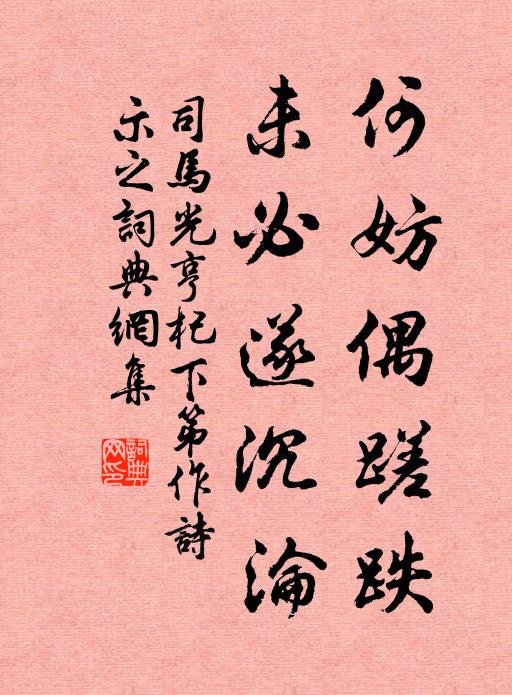 何妨偶蹉跌
未必遂沉淪
司馬光亨杞下第作詩
示之詞典網集
詞典網印